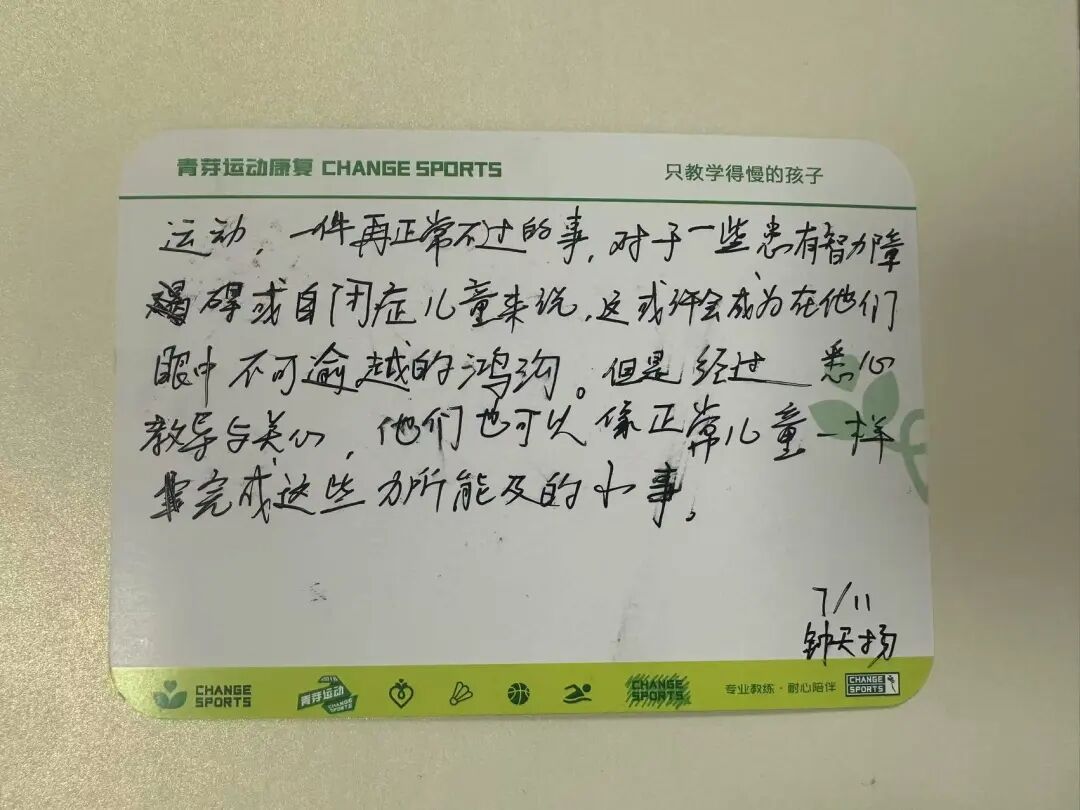 青芽运动康复 CHANGE SPORTS
只教学得慢的孩子
运动，一件再正常不过的事，对于一些患有智力障
碍或自闭症儿童来说，这或许会成为在他们
眼中不可逾越的鸿沟。但是经过悉心
教导与关心，他们也可以像正常儿童一样
完成这些力所能及的小事。
7/11
钟天扬
CHANGE SPORTS
青芽运动
CHANGE SPORTS
CHANGE SPORTS
专业教练·耐心陪伴
CHANGE SPORTS